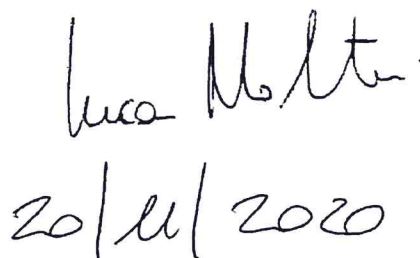 Luca Molten
20/11/2020